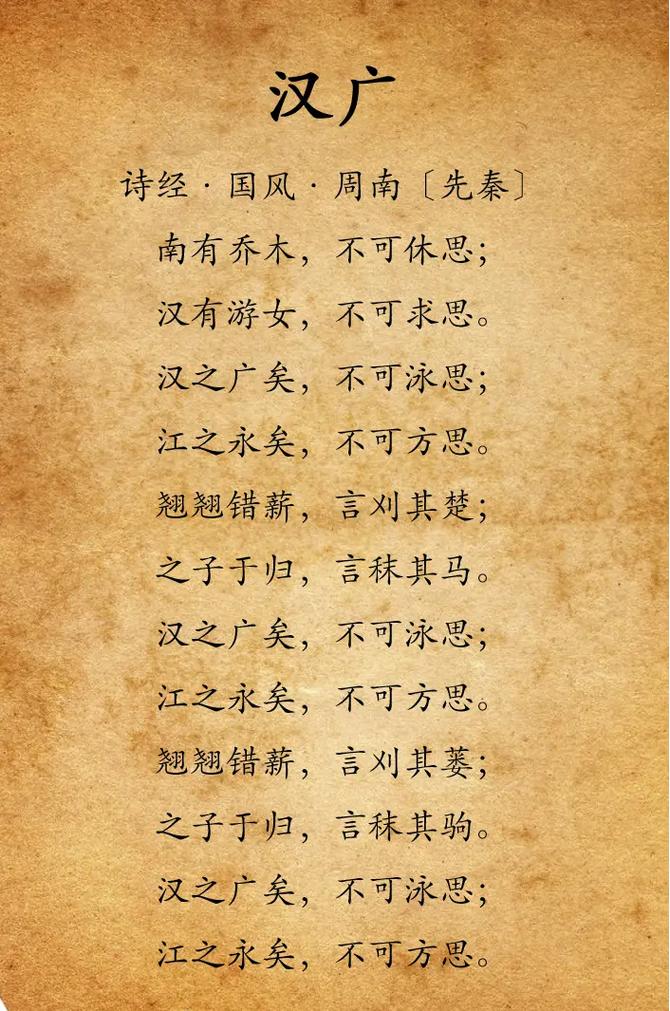 汉广
诗经·国风·周南〔先秦〕
南有乔木，不可休思；
汉有游女，不可求思。
汉之广矣，不可泳思；
江之永矣，不可方思。
翘翘错薪，言刈其楚；
之子于归，言秣其马。
汉之广矣，不可泳思；
江之永矣，不可方思。
翘翘错薪，言刈其蒌；
之子于归，言秣其驹。
汉之广矣，不可泳思；
江之永矣，不可方思。